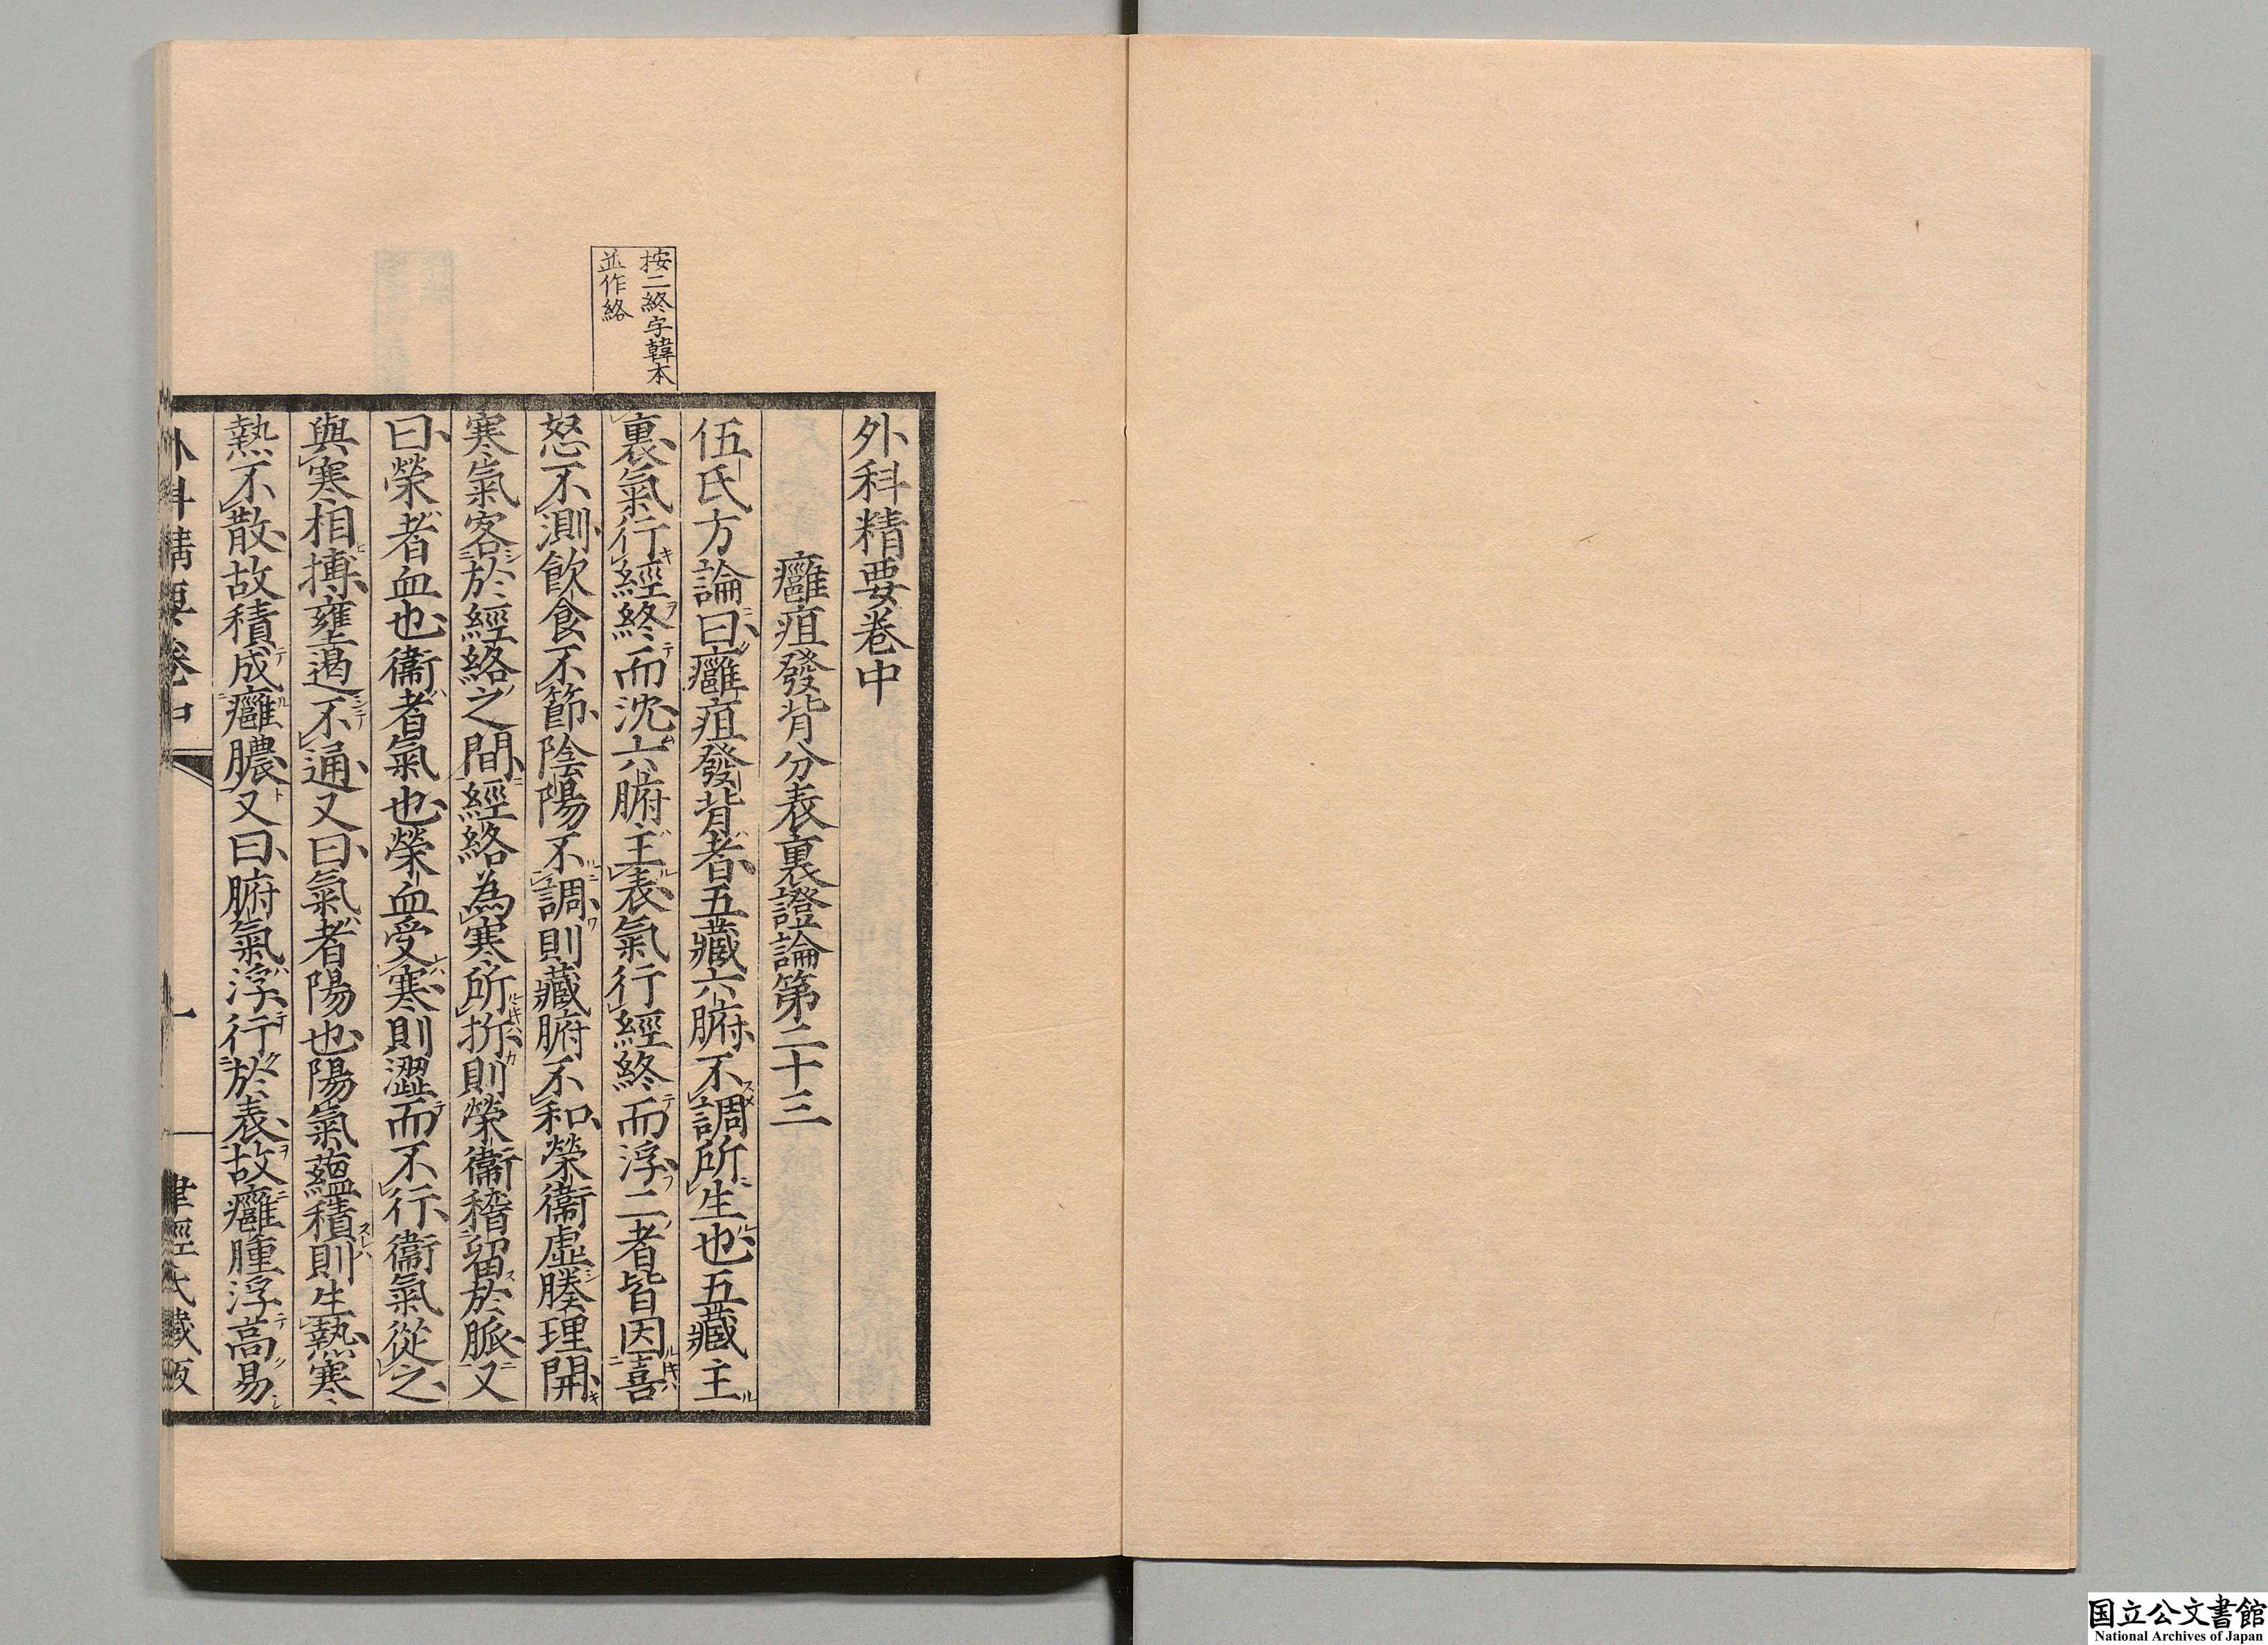 按二終字韓本
並作絡
外科精要卷中
癰疽發背分表裏證論第二十三
伍氏方論曰癰疽發背者五藏六腑不調所生也五藏主
裏氣行經終而沈六腑主表氣行經終而浮二者皆因喜
怒不測飲食不節陰陽不調則藏腑不和榮衞虛腠理開
寒氣客於經絡之間經絡為寒所折則榮衞稽留於脈又
曰榮者血也衞者氣也榮血受寒則澀而不行衞氣從之
與寒相摶壅遏不通又曰氣者陽也陽氣蘊積則生熱寒
熱不散故積成癰膿又曰腑氣浮行於表故癰腫浮高易
外科精要卷中 一 聿經氏藏版
国立公文書館
National Archives of Japan